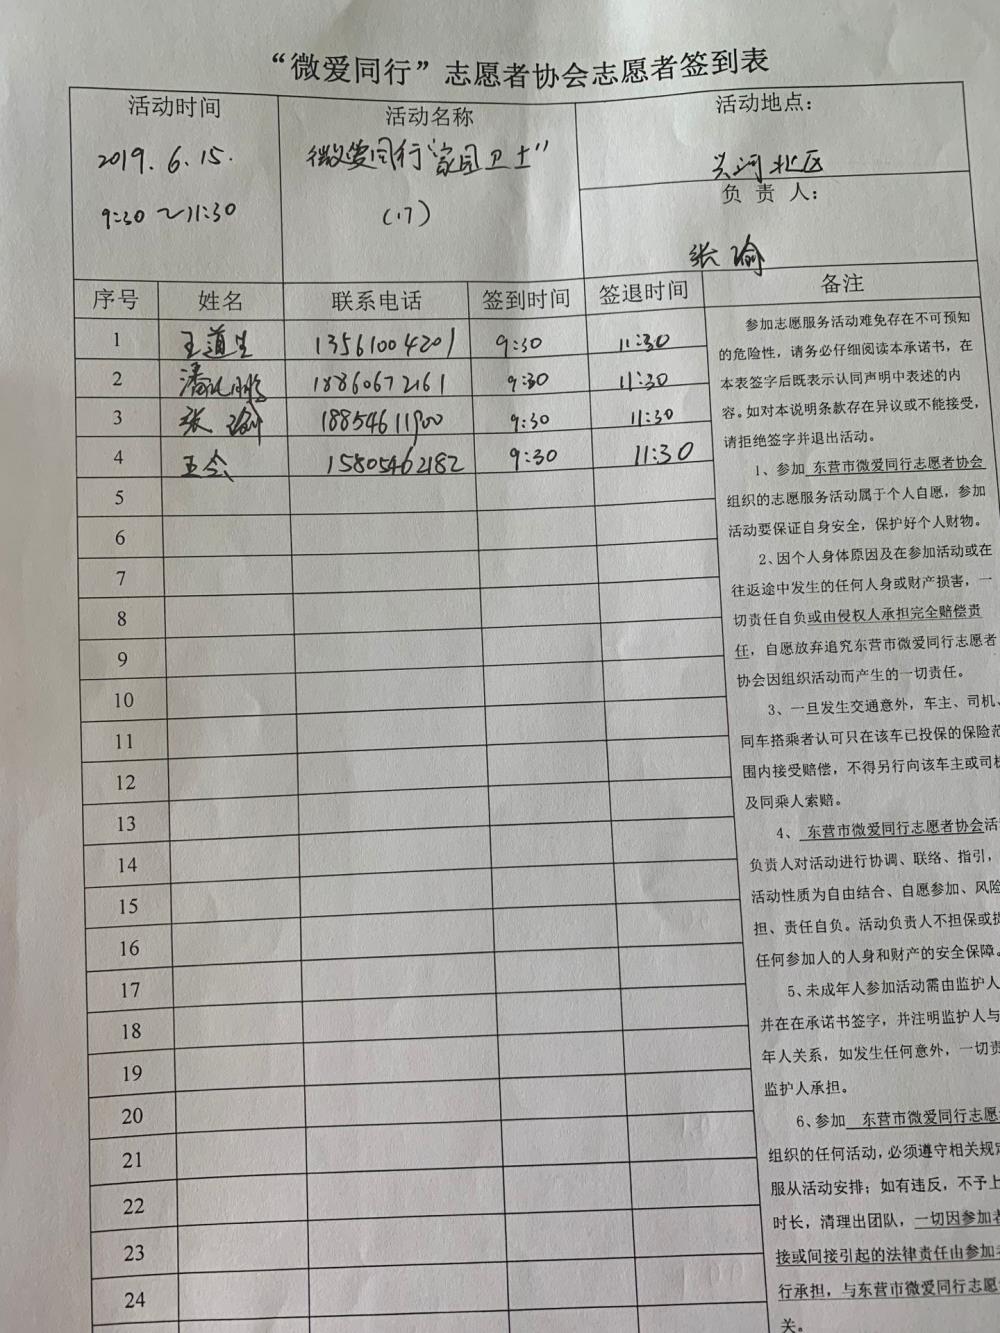 “微爱同行”志愿者协会志愿者签到表
活动时间
2019.6.15.
9:30～11:30
活动名称
微爱同行“家园卫士”
(17)
活动地点：
兴河北区
负责人：
张瑜
序号 姓名 联系电话 签到时间 签退时间 备注
1 王道生 13561004201 9:30 11:30
2 18860672161 9:30 11:30
3 张瑜 18854611900 9:30 11:30
4 王会 15805462182 9:30 11:30
5
6
7
8
9
10
11
12
13
14
15
16
17
18
19
20
21
22
23
24
参加志愿服务活动难免存在不可预知
的危险性，请务必仔细阅读本承诺书，在
本表签字后既表示认同声明中表述的内
容。如对本说明条款存在异议或不能接受，
请拒绝签字并退出活动。
1、参加 东营市微爱同行志愿者协会
组织的志愿服务活动属于个人自愿，参加
活动要保证自身安全，保护好个人财物。
2、因个人身体原因及在参加活动或在
往返途中发生的任何人身或财产损害，一
切责任自负或由侵权人承担完全赔偿责
任，自愿放弃追究东营市微爱同行志愿者
协会因组织活动而产生的一切责任。
3、一旦发生交通意外，车主、司机、
同车搭乘者认可只在该车已投保的保险范
围内接受赔偿，不得另行向该车主或司机
及同乘人索赔。
4、 东营市微爱同行志愿者协会活
负责人对活动进行协调、联络、指引，
活动性质为自由结合、自愿参加、风险
担、责任自负。活动负责人不担保或提
任何参加人的人身和财产的安全保障。
5、未成年人参加活动需由监护人
并在在承诺书签字，并注明监护人与
年人关系，如发生任何意外，一切责
监护人承担。
6、参加 东营市微爱同行志愿
组织的任何活动，必须遵守相关规定
服从活动安排；如有违反，不予上
时长，清理出团队，一切因参加者
接或间接引起的法律责任由参加者
行承担，与东营市微爱同行志愿
关。